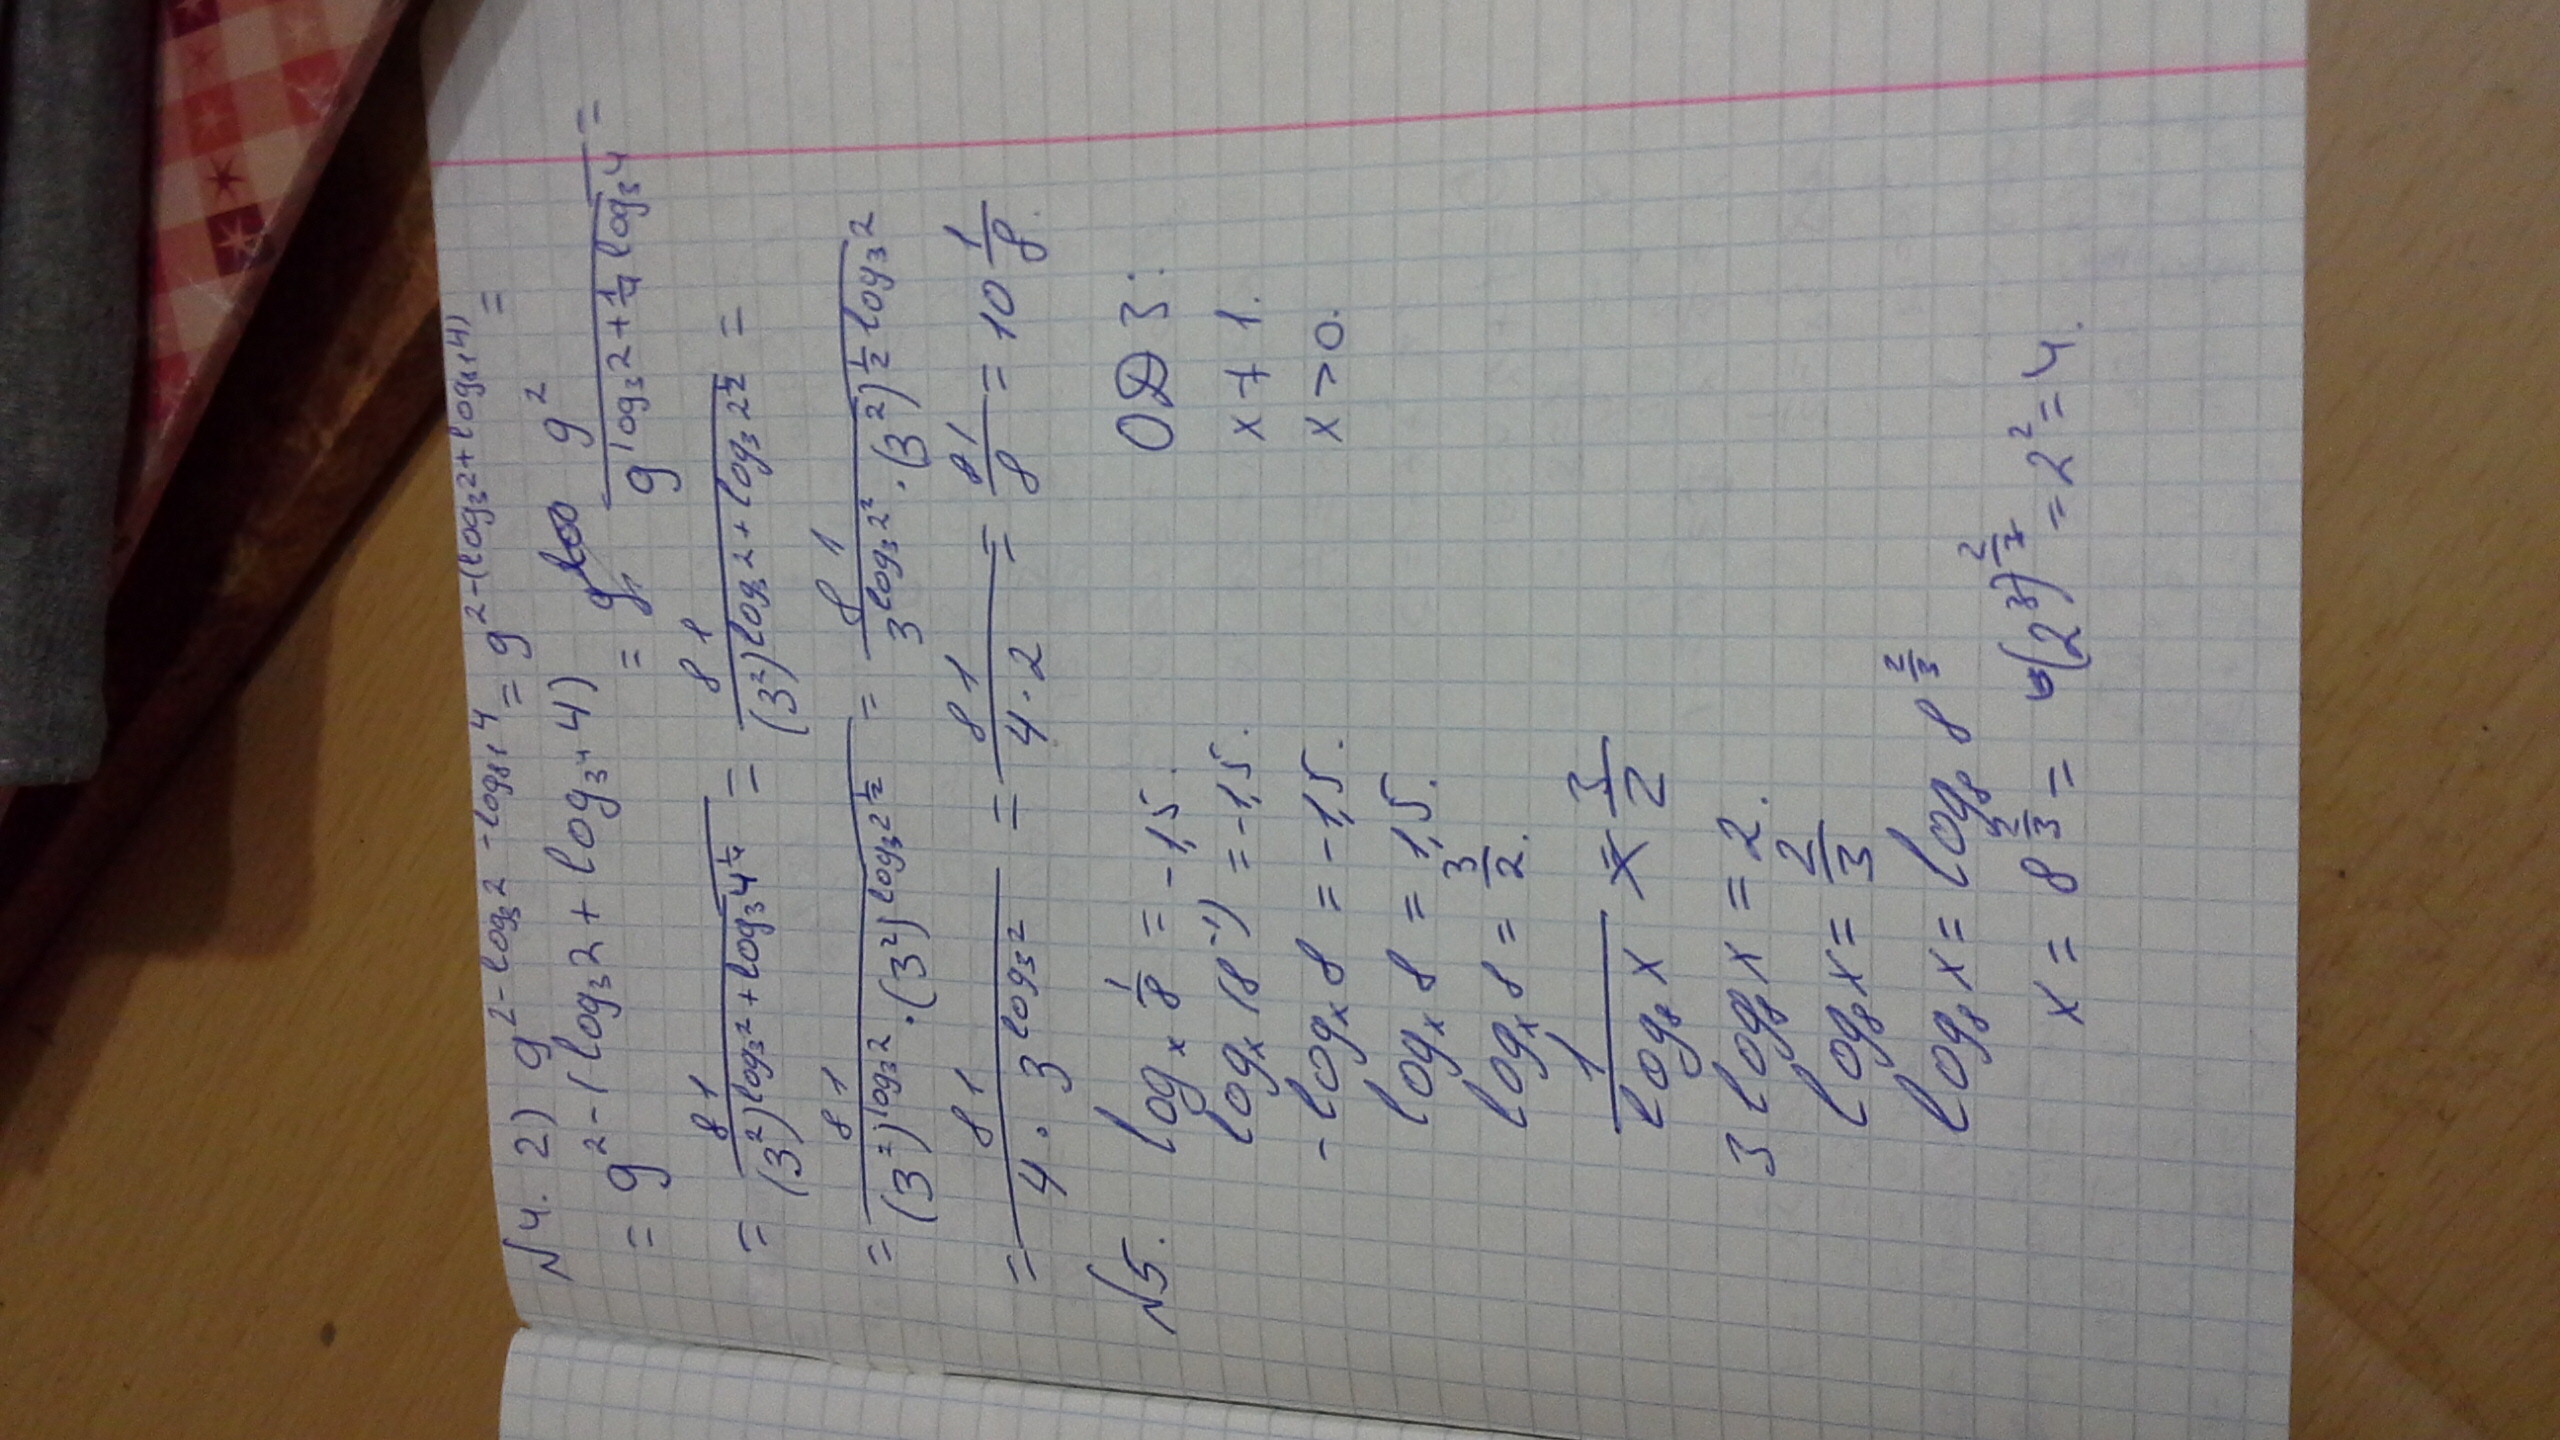 №4. 2) 9^{2-log_3 2 - log_{81} 4} = 9^{2-(log_3 2 + log_{81} 4)} =
= 9^{2-(log_3 2 + log_{3^4} 4)} = \frac{9^2}{9^{log_3 2 + \frac{1}{4} log_3 4}} =
= \frac{81}{(3^2)^{log_3 2 + log_3 4^{\frac{1}{4}}}} = \frac{81}{(3^2)^{log_3 2 + log_3 2^{\frac{1}{2}}}} =
= \frac{81}{(3^2)^{log_3 2} · (3^2)^{log_3 2^{\frac{1}{2}}}} = \frac{81}{3^{log_3 2^2} · (3^2)^{\frac{1}{2} log_3 2}}
= \frac{81}{4 · 3^{log_3 2}} = \frac{81}{4 · 2} = \frac{81}{8} = 10\frac{1}{8}.
№5. log_x \frac{1}{8} = -1,5. ОДЗ:
log_x (8^{-1}) = -1,5. x ≠ 1.
-log_x 8 = -1,5. x > 0.
log_x 8 = 1,5.
log_x 8 = \frac{3}{2}.
\frac{1}{log_8 x} = \frac{3}{2}
3 log_8 x = 2.
log_8 x = \frac{2}{3}
log_8 x = log_8 8^{\frac{2}{3}}
x = 8^{\frac{2}{3}} = (2^3)^{\frac{2}{3}} = 2^2 = 4.